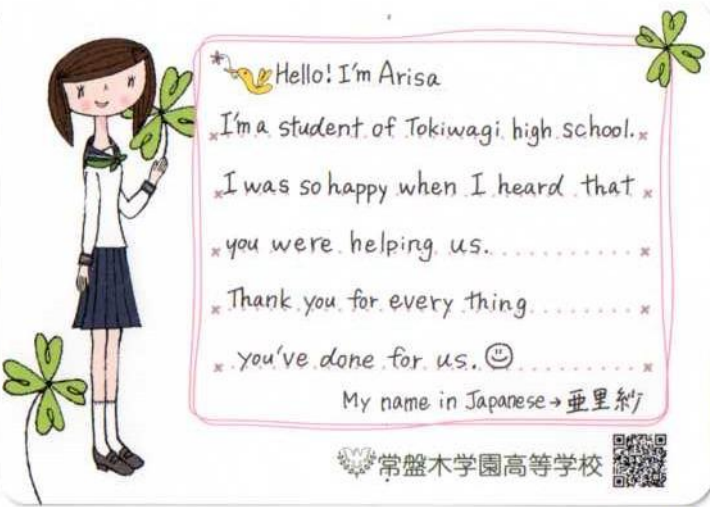 Hello! I'm Arisa
I'm a student of Tokiwagi high school.
I was so happy when I heard that
you were helping us.
Thank you for every thing
you've done for us.
My name in Japanese→亜里紗
常盤木学園高等学校